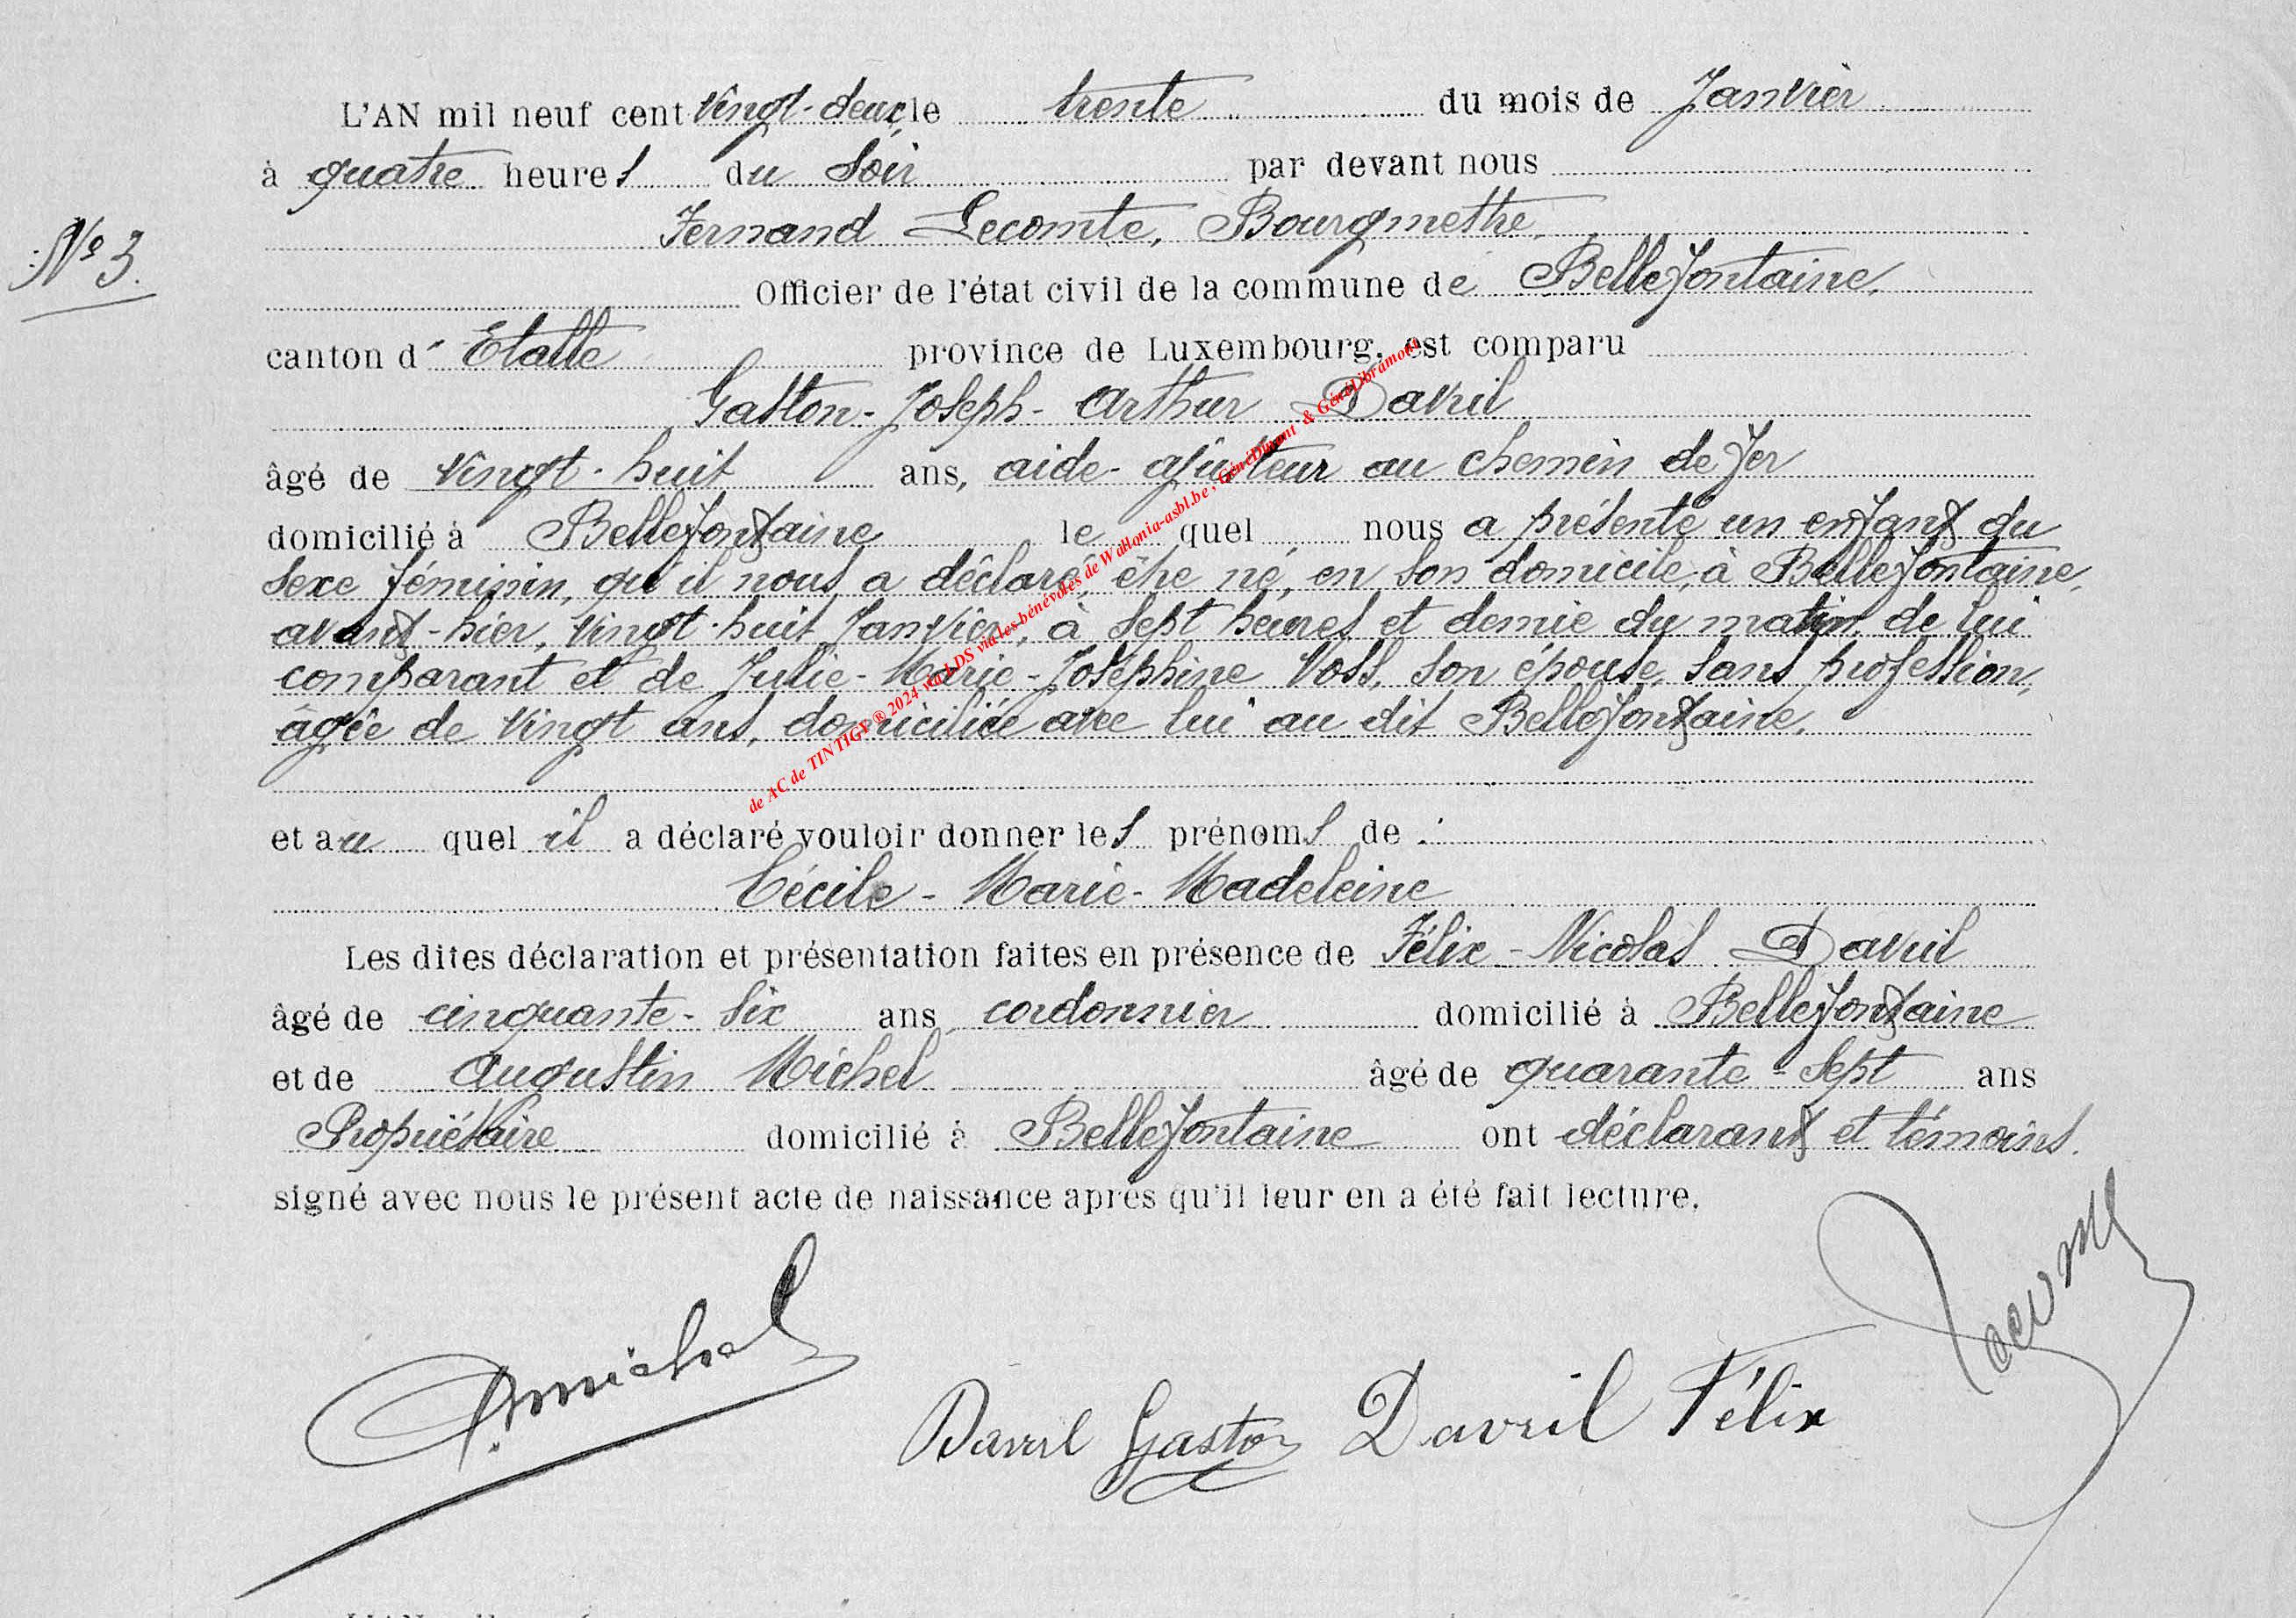 L'AN mil neuf cent vingt-deux, le trente du mois de Janvier
à quatre heures du soir par devant nous
Fernand Lecomte, Bourgmestre,
N° 3.
Officier de l'état civil de la commune de Bellefontaine,
canton d' Etalle province de Luxembourg, est comparu
Gaston-Joseph-Arthur Davril
âgé de vingt-huit ans, aide-ajusteur au chemin de fer
domicilié à Bellefontaine le quel nous a présenté un enfant du
sexe féminin, qu'il nous a déclaré être né, en son domicile, à Bellefontaine,
avant-hier, vingt-huit Janvier, à sept heures et demie du matin, de lui
comparant et de Julie-Marie-Joséphine Voss, son épouse, sans profession,
âgée de vingt ans, domiciliée avec lui au dit Bellefontaine.
et au quel il a déclaré vouloir donner les prénoms de :
Cécile-Marie-Madeleine
Les dites déclaration et présentation faites en présence de Félix-Nicolas Davril
âgé de cinquante-six ans, cordonnier domicilié à Bellefontaine
et de Augustin Michel âgé de quarante-sept ans
Propriétaire domicilié à Bellefontaine ont déclarant et témoins.
signé avec nous le présent acte de naissance après qu'il leur en a été fait lecture.
A. Michel
Davril Gaston Davril Félix
de AC de TINTIGY ® 2024 via LDS via les bénévoles de Wallonia-asbl.be, GénéDinant & GénéLibramont
L'AN